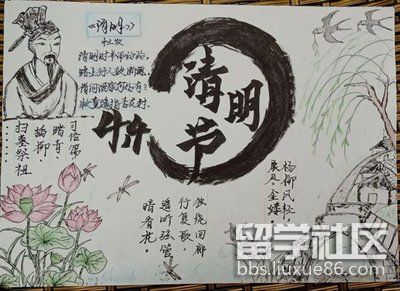 《清明》
杜牧
清明时节雨纷纷,
路上行人欲断魂,
借问酒家何处有?
牧童遥指杏花村.
清明节
踏青
插柳、
扫墓祭祖
杨柳风轻,
展尽金缕
独绕回廊
行复歇,
遥听弦管
暗看花.
留学社区
bbs.liuxue86.com